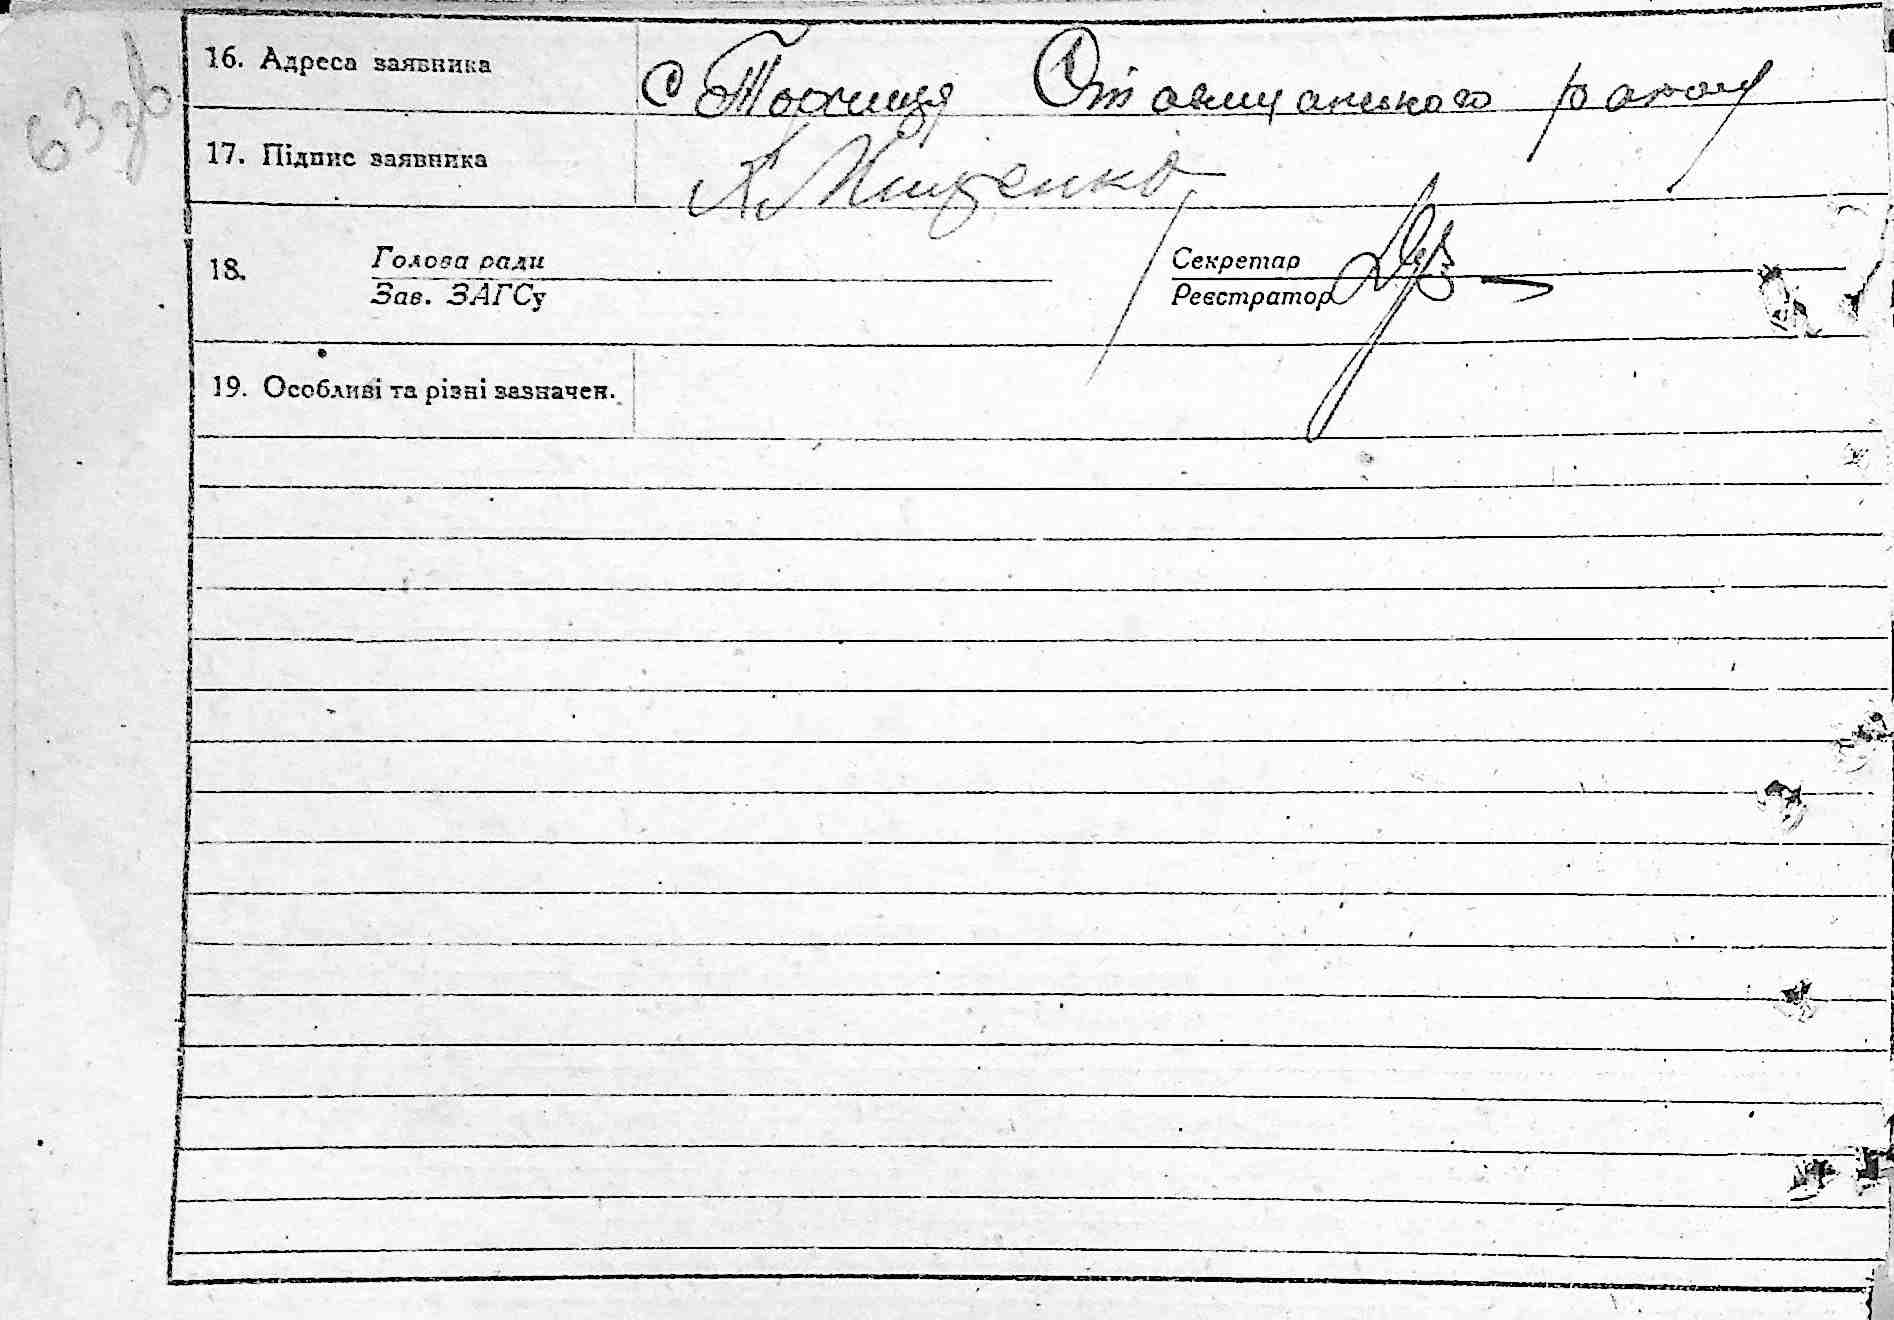 63 зв
16. Адреса заявника с Торчиця Ставищанського району
17. Підпис заявника Іщенко
18. Голова ради Секретар
Зав. ЗАГСу Реєстратор
19. Особливі та різні зазначен.